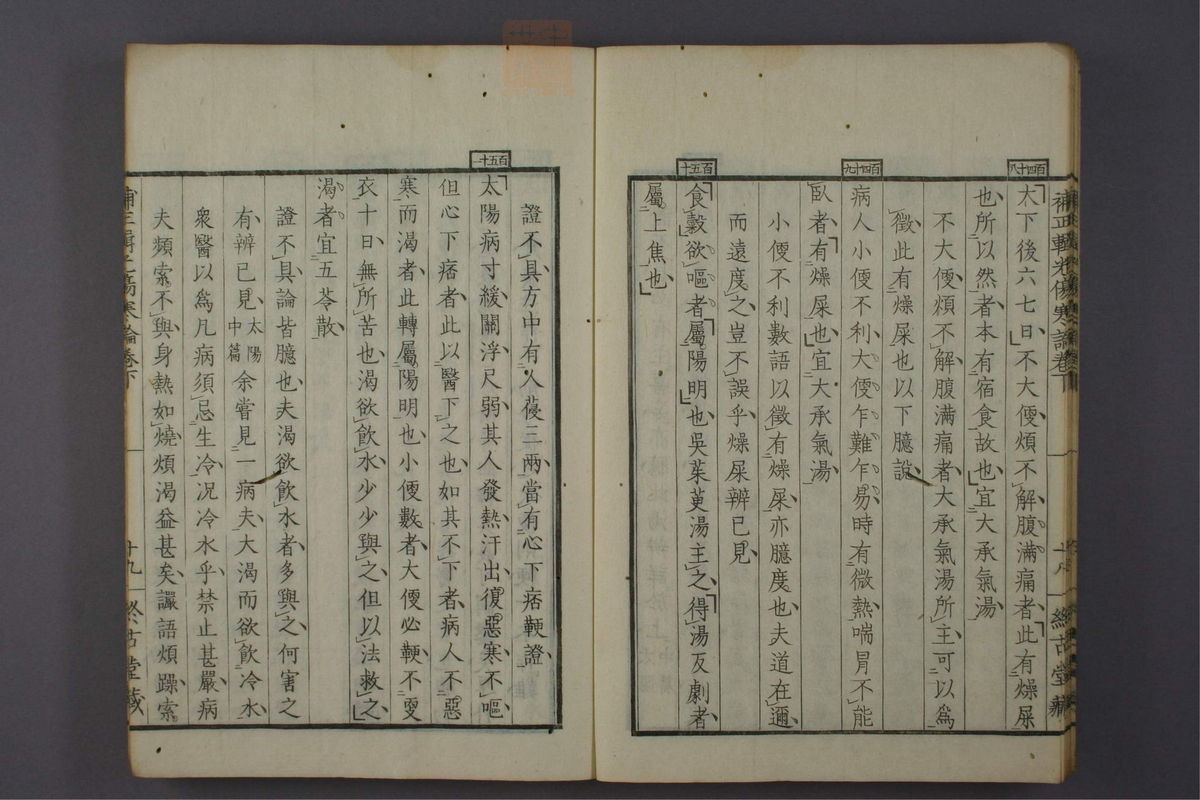 百四十八
大下後六七日不大便煩不解腹滿痛者此有燥屎
也所以然者本有宿食故也宜大承氣湯
不大便煩不解腹滿痛者大承氣湯所主可以爲
徵此有燥屎也以下臆說
百四十九
病人小便不利大便乍難乍易時有微熱喘冐不能
臥者有燥屎也宜大承氣湯
小便不利數語以徵有燥屎亦臆度也夫道在邇
而遠度之豈不誤乎燥屎辨已見
百五十
食穀欲嘔者屬陽明也吳茱萸湯主之得湯反劇者
屬上焦也
證不具方中有人葠三兩當有心下痞鞕證
百五十一
太陽病寸緩關浮尺弱其人發熱汗出復惡寒不嘔
但心下痞者此以醫下之也如其不下者病人不惡
寒而渴者此轉屬陽明也小便數者大便必鞕不更
衣十日無所苦也渴欲飮水少少與之但以法救之
渴者宜五苓散
證不具論皆臆也夫渴欲飮水者多與之何害之
有辨已見太陽中篇余嘗見一病夫大渴而欲飮冷水
衆醫以爲凡病須忌生冷况冷水乎禁止甚嚴病
夫頻索不與身熱如燒煩渴益甚矣讝語煩躁索
十九